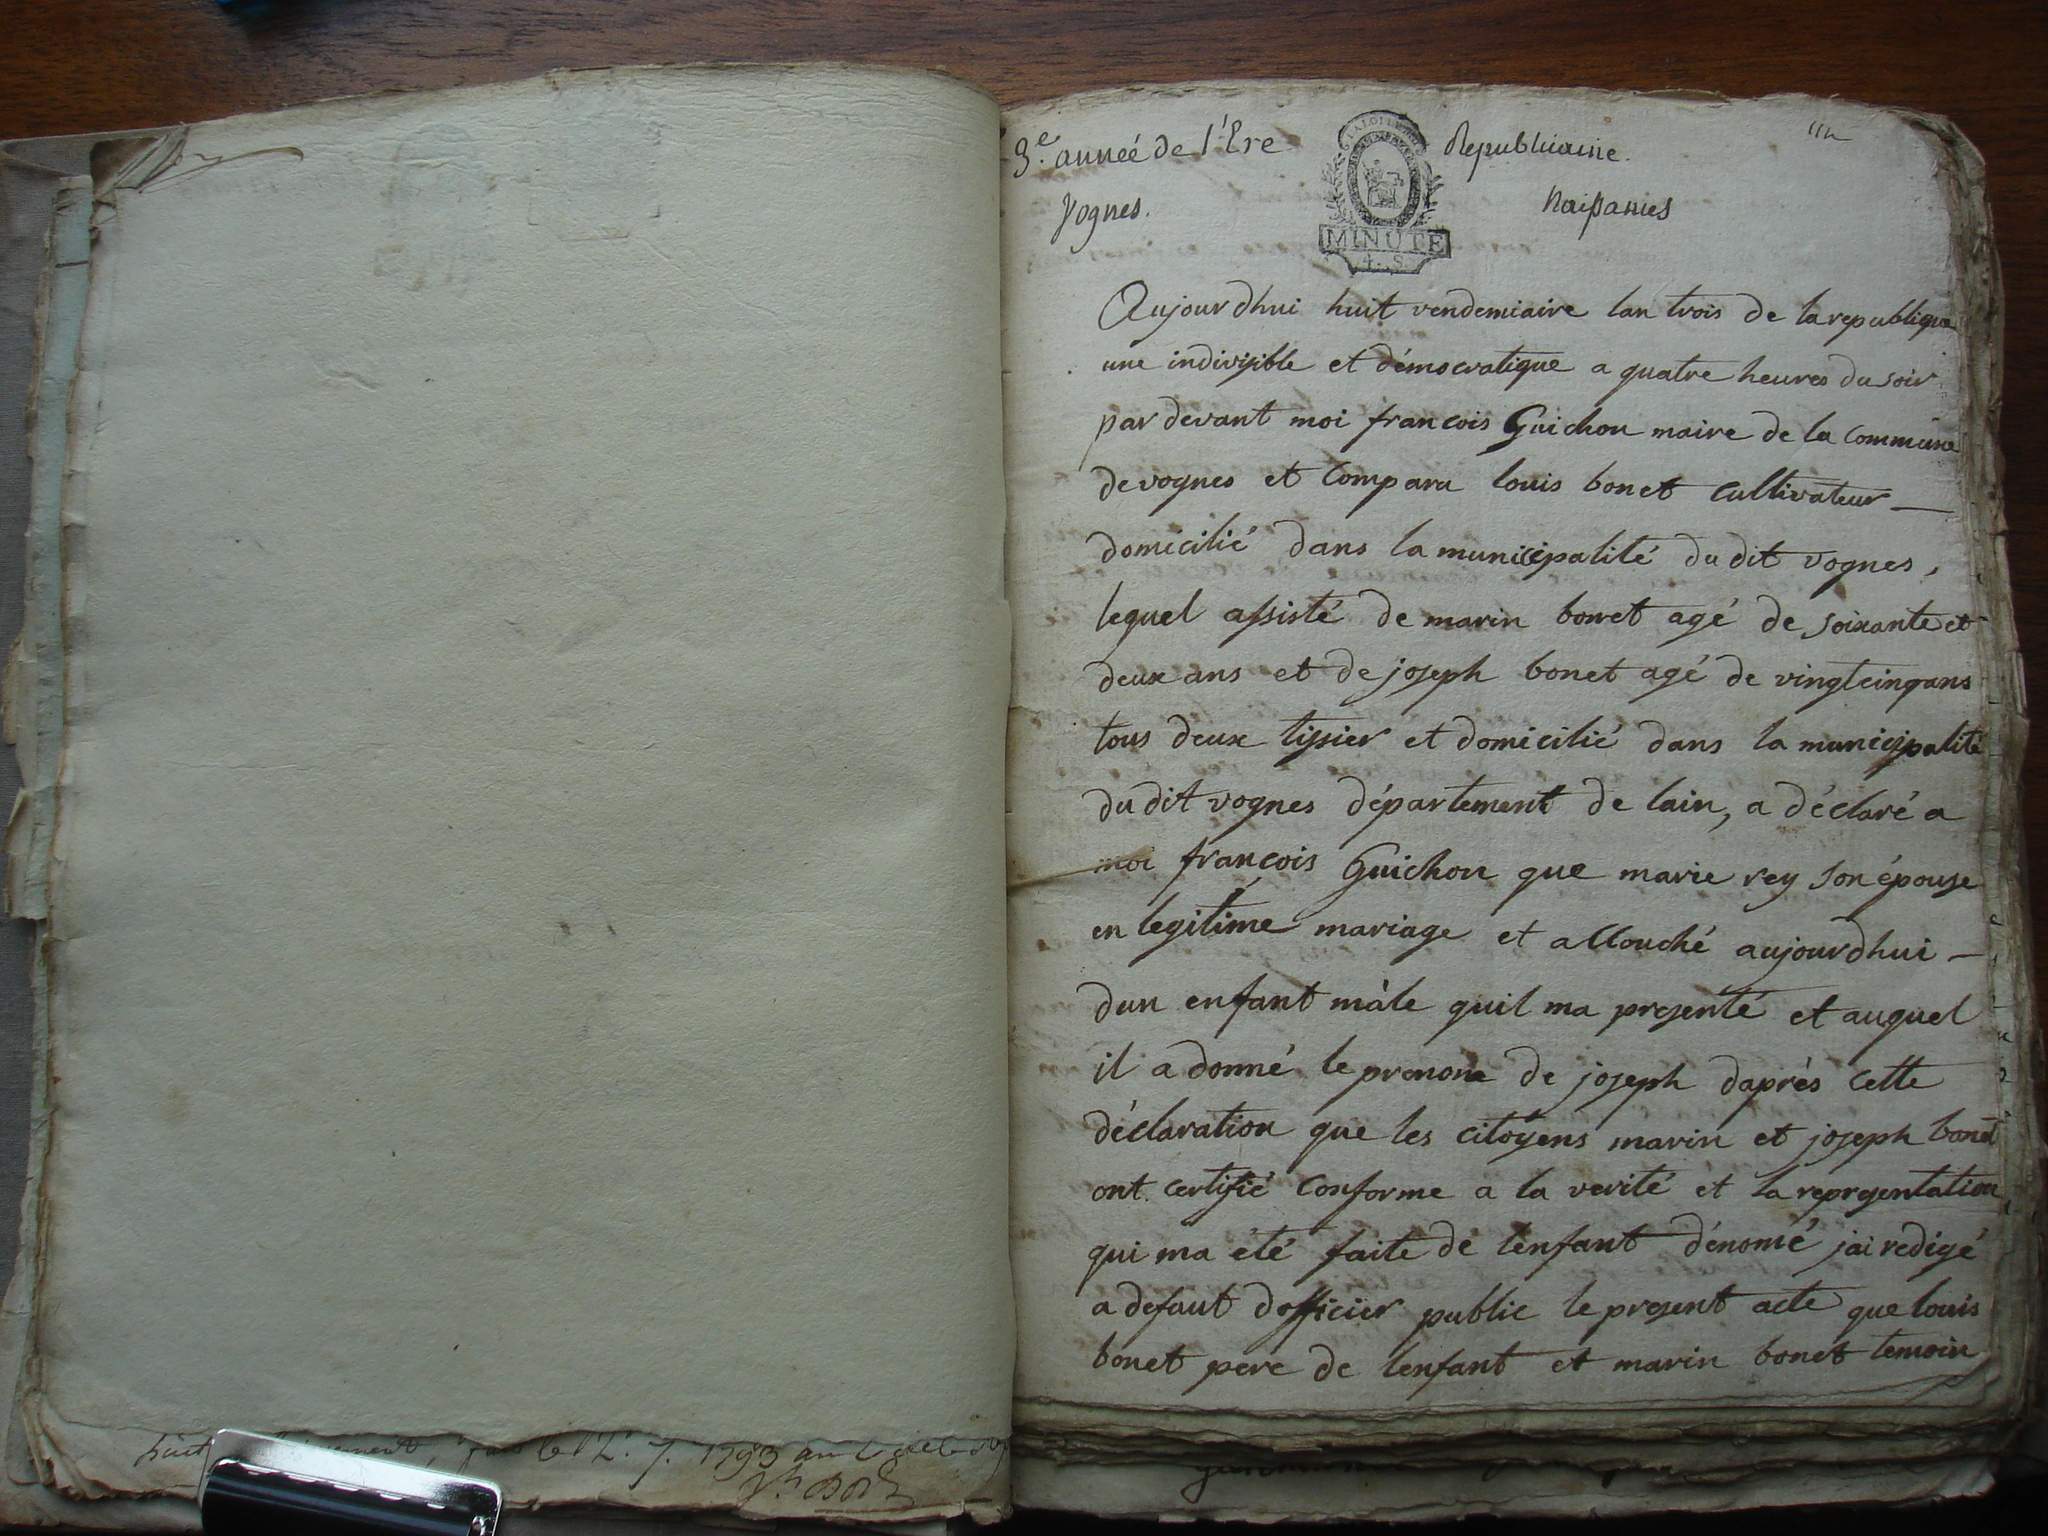 3.e anneé de l'Ere Republicaine.
Vognes. Naissances
LA LOI
MINUTE
4. S.
Aujourdhui huit vendemiaire lan trois de la republique
une indivisible et démocratique a quatre heures du soir
par devant moi francois Guichon maire de la commune
de vognes et comparu louis bonet cultivateur
domicilié dans la municipalité du dit vognes,
lequel assisté de marin bonet agé de soixante et
deux ans et de joseph bonet agé de vingt cinq ans
tous deux tissier et domicilié dans la municipalité
du dit vognes département de lain, a déclaré a
moi françois Guichon que marie rey son épouse
en legitime mariage et allouché aujourdhui
dun enfant màle quil ma presenté et auquel
il a donné le prenom de joseph daprès cette
déclaration que les citoÿens marin et joseph bonet
ont certifié conforme a la verité et la representation
qui ma été faite dé lenfant dénomé jai redigé
a defaut dofficier public le present acte que louis
bonet pere de lenfant et marin bonet temoin
1793